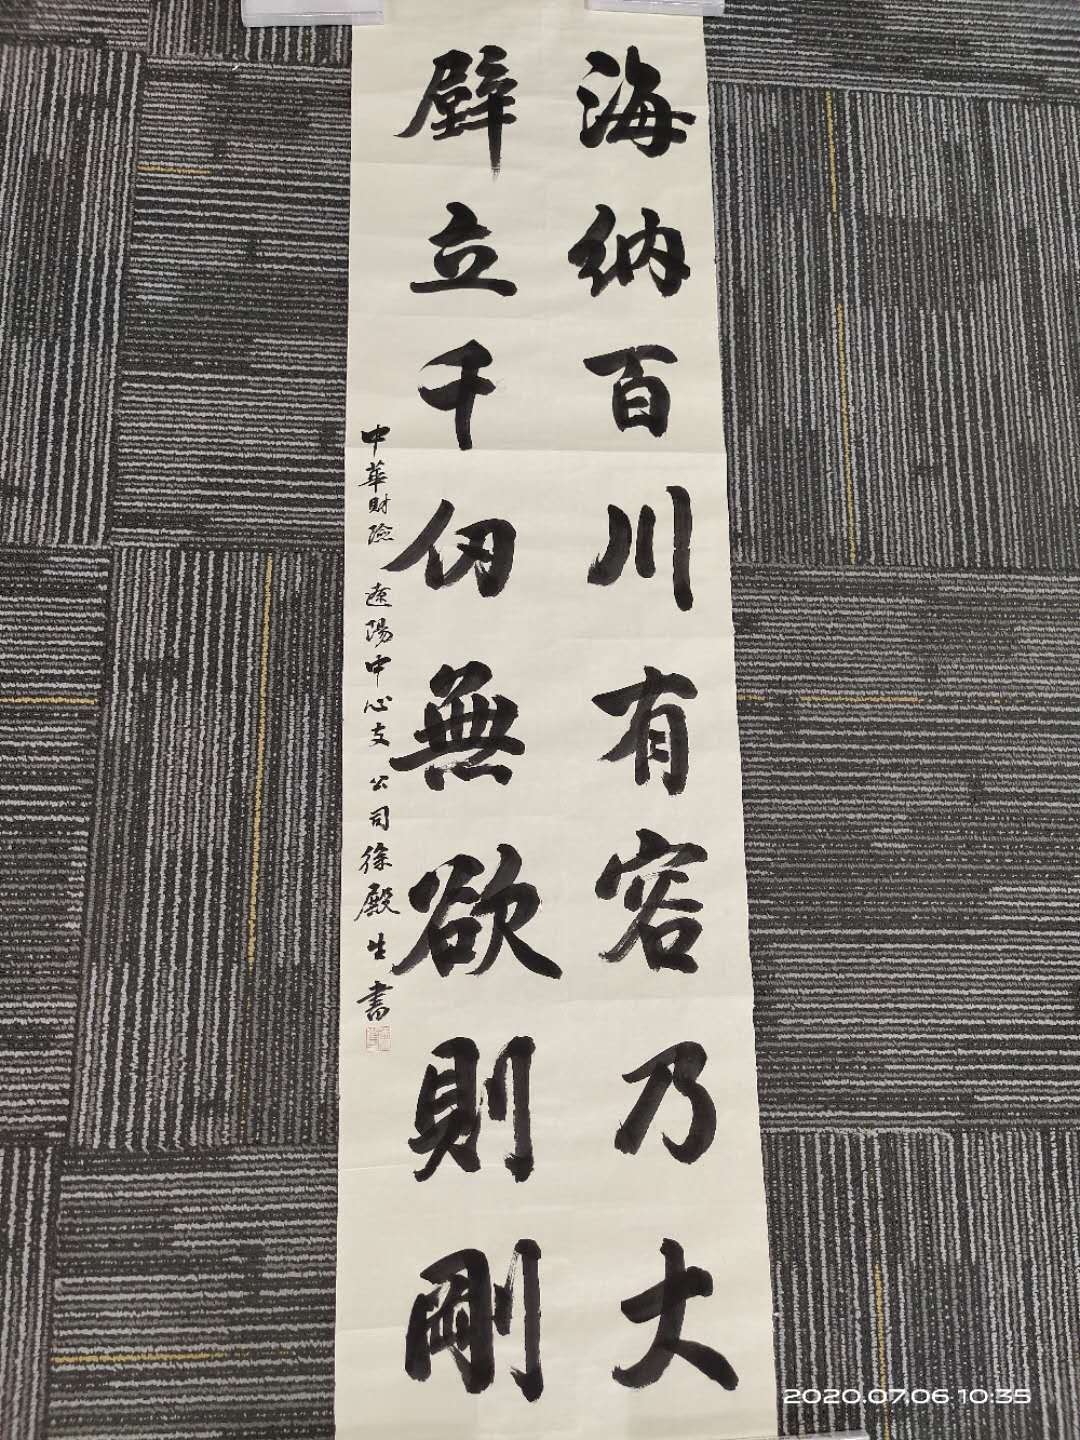 海納百川有容乃大
壁立千仞無欲則剛
中華財險 遼陽中心支公司徐殿生書
2020.07.06 10:35